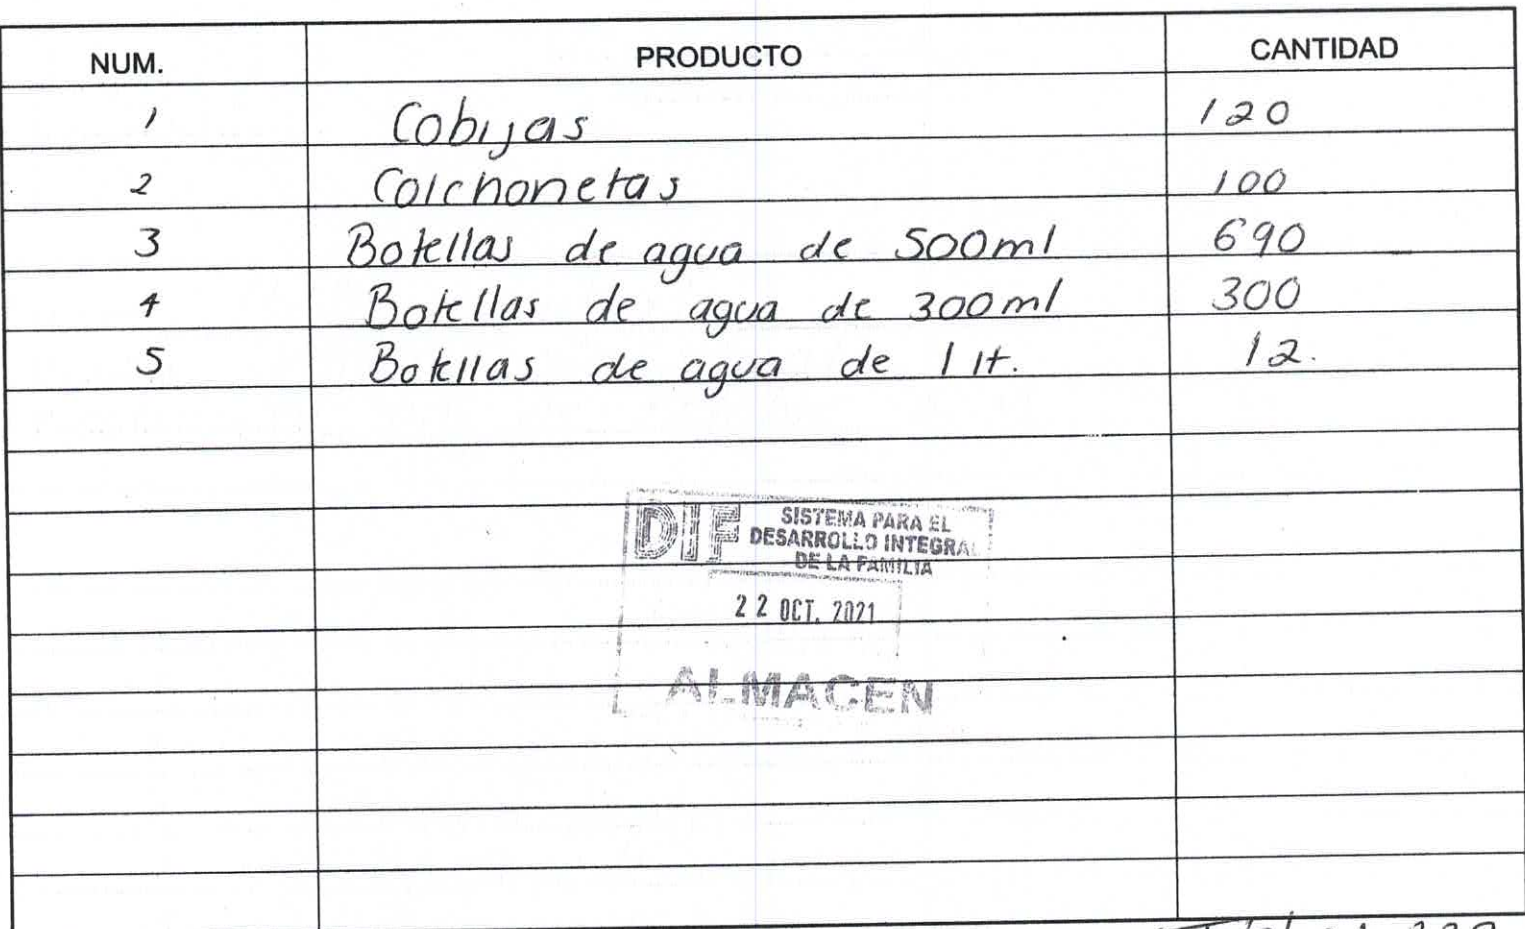 NUM. PRODUCTO CANTIDAD
1 Cobijas 120
2 Colchonetas 100
3 Botellas de agua de 500ml 690
4 Botellas de agua de 300ml 300
5 Botellas de agua de 1 lt. 12.
DIF SISTEMA PARA EL
DESARROLLO INTEGRAL
DE LA FAMILIA
22 OCT. 2021
ALMACEN